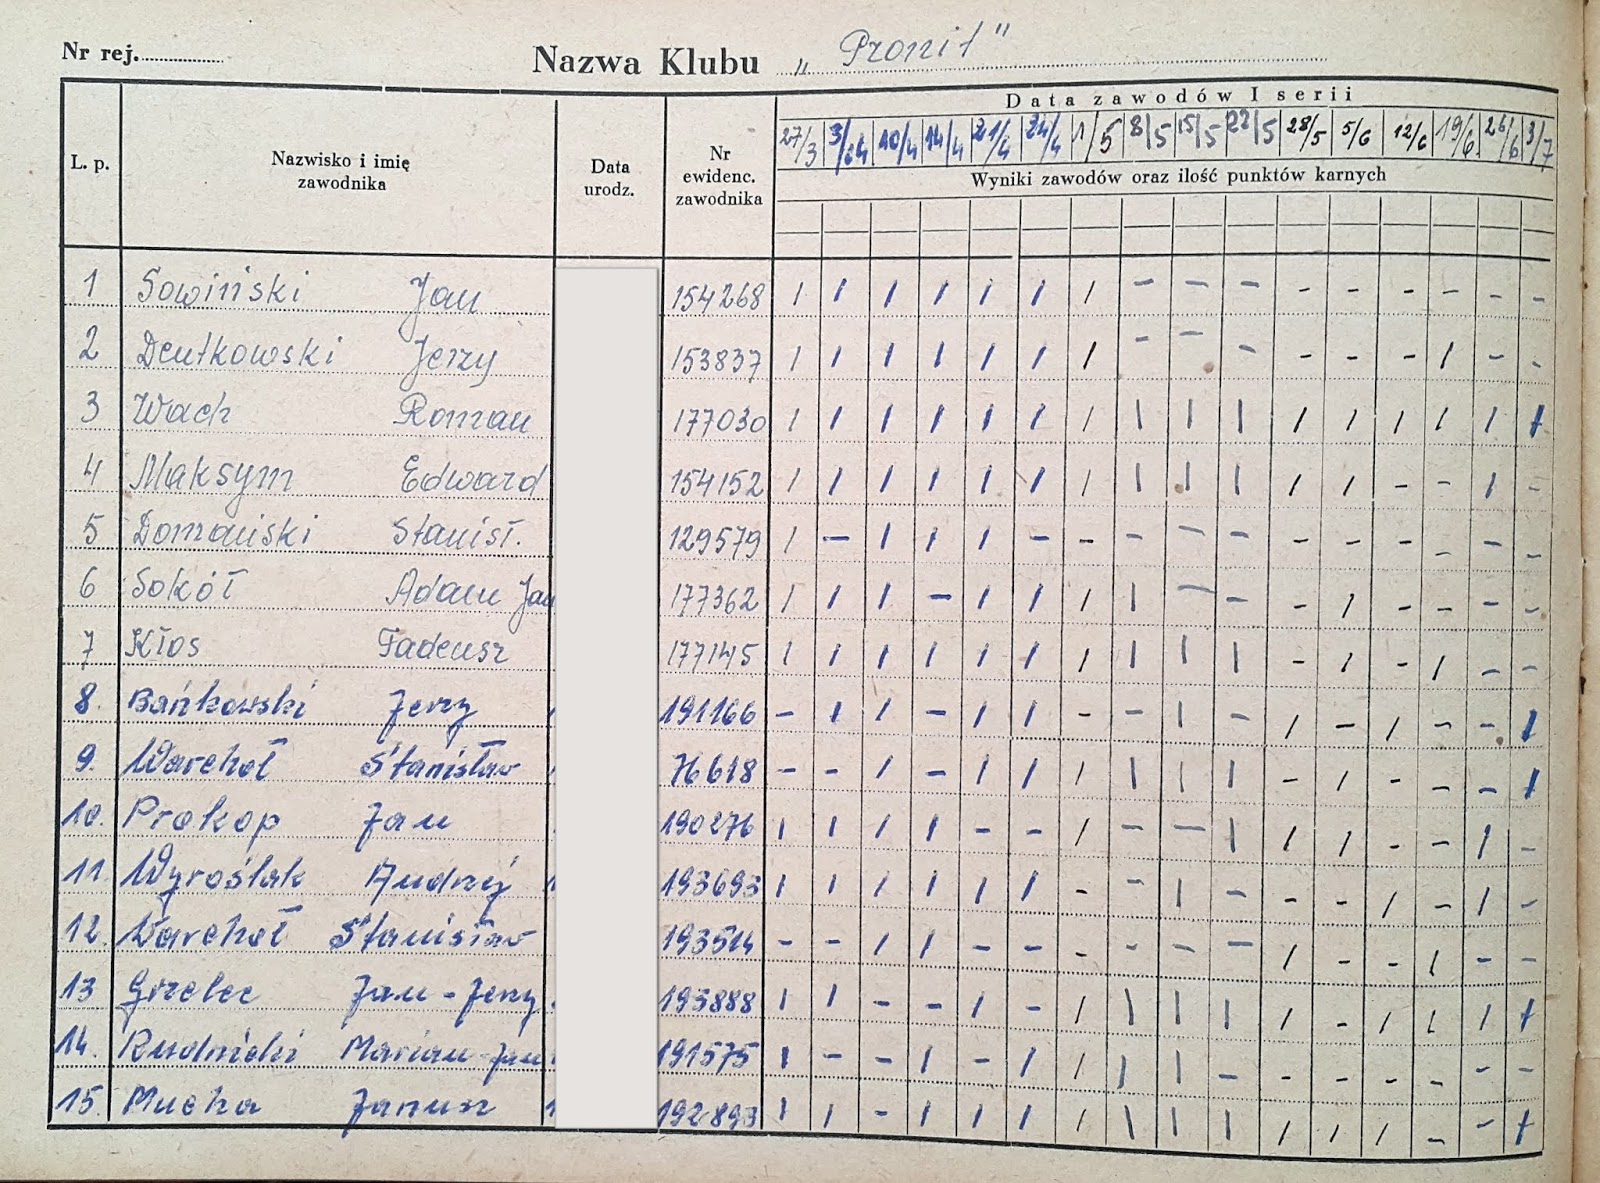 Nr rej.
Nazwa Klubu „Pronit"
L. p. Nazwisko i imię zawodnika Data urodz. Nr ewidenc. zawodnika Data zawodów I serii
27/3 3/4 10/4 14/4 21/4 24/4 1/5 8/5 15/5 22/5 28/5 5/6 12/6 19/6. 26/6 3/7
Wyniki zawodów oraz ilość punktów karnych
1 Sowiński Jan 154268 / / / / / / / - - - - - - - - -
2 Deutkowski Jerzy 153837 / / / / / / / - - - - - - / - -
3 Wach Roman 177030 / / / / / / / / / / / / / / / +
4 Maksym Edward 154152 / / / / / / / / / / / / - - / -
5 Domański Stanisł. 129579 / - / / / - - - - - - - - - - -
6 Sokół Adam Jan 177362 / / / - / / / / - - - / - - - -
7 Kłos Tadeusz 177145 / / / / / / / / / / - / - / - -
8. Bańkowski Jerzy 191166 - / / - / / - - / - / - / - - /
9. Warchoł Stanisław 76618 - - / - / / / / / / - / - - - +
10. Prokop Jan 190276 / / / / - - / - - / / / - - / -
11. Wyroślak Andrzej 193693 / / / / / / - - / - - - / - / -
12. Warchoł Stanisław 193514 - - / / - - - - - - / - - / - -
13 Grzelec Jan-Jerzy 193888 / / - - / - / / / / / - / / / +
14. Rudnicki Marian-Jan 191575 / - - / - / / / / - - - - - - -
15. Mucha Janusz 192893 / / - / / / / / / / / / / - - +